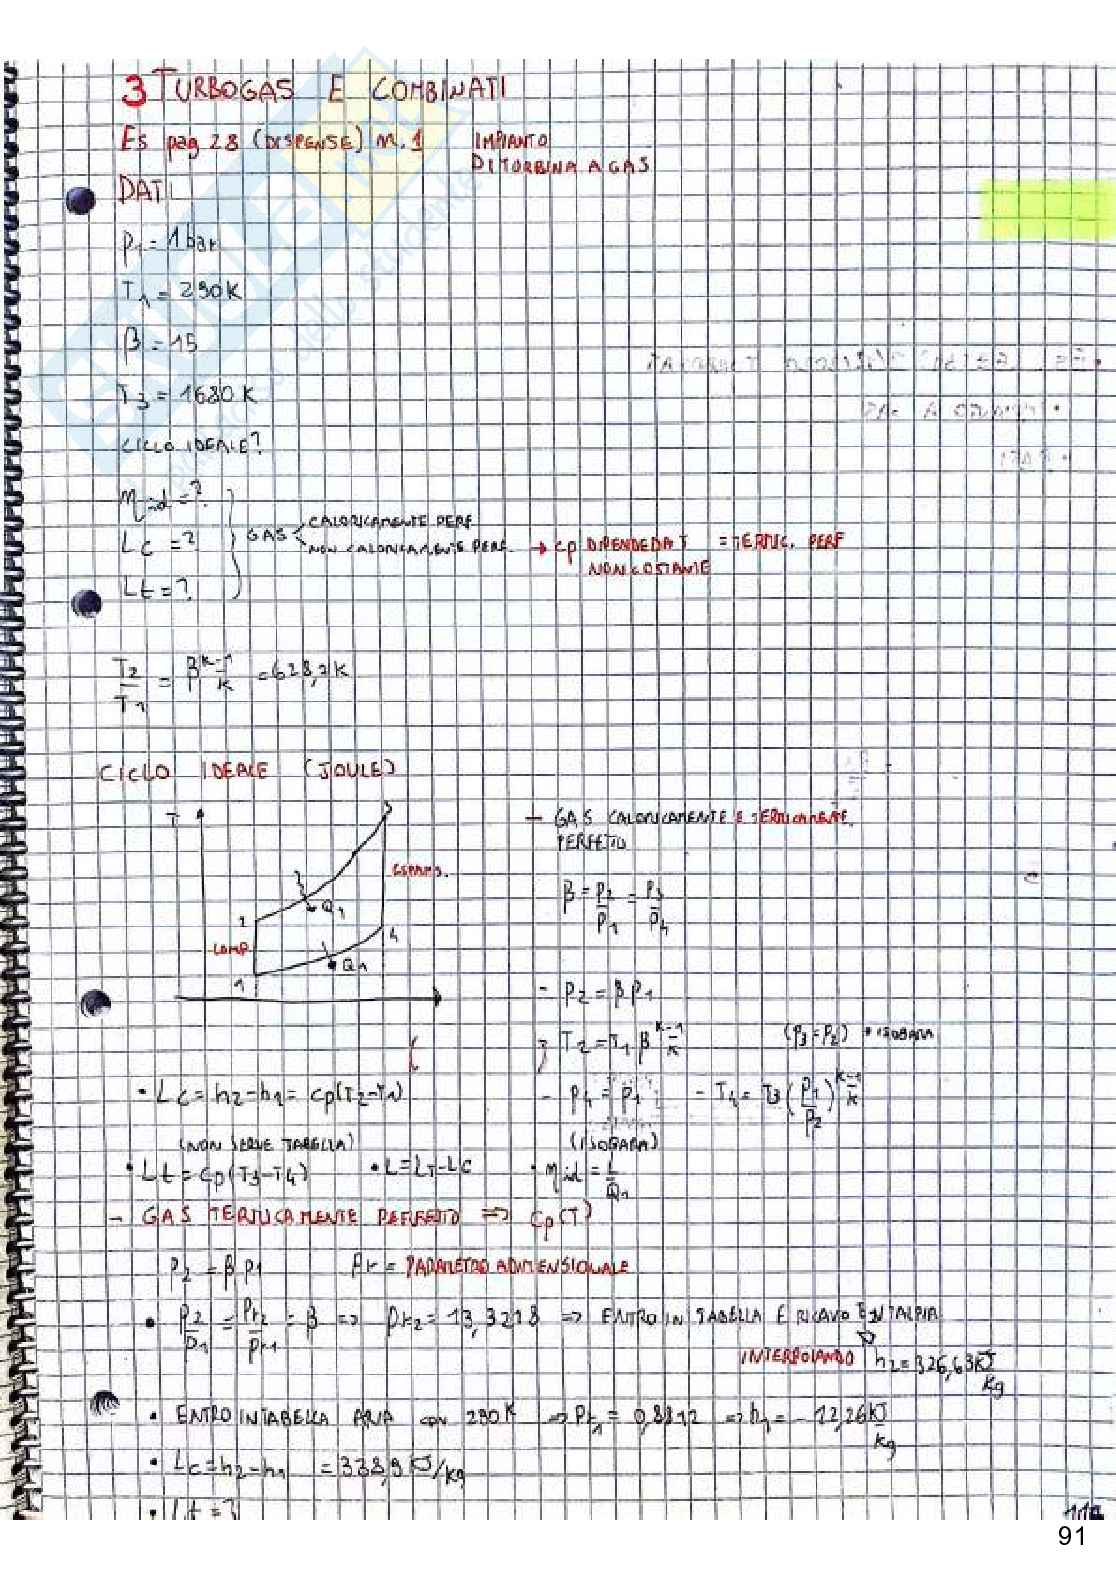 3 TURBOGAS E COMBINATI
ES pag 28 (DISPENSE) n. 1 IMPIANTO
DI TURBINA A GAS
DATI
p1 = 1 bar
T1 = 290 K
β = 15
T3 = 1680 K
CICLO IDEALE?
ηid = ?
LC = ?
Lt = ?
GAS CALORICAMENTE PERF
NON CALORICAMENTE PERF. → cp DIPENDE DA T = TERMIC. PERF
NON COSTANTE
T2/T1 = β^(k-1/k) = 628,7 K
CICLO IDEALE (JOULE)
T
3
ESPANS.
2
Q1
COMP.
4
Q1
1
- GAS CALORICAMENTE E TERMICAMENTE
PERFETTO
β = p2/p1 = p3/p4
- p2 = β p1
T2 = T1 β^(k-1/k) (p3 = p2) • ISOBARA
• LC = h2-h1 = cp(T2-T1)
- p4 = p1 - T4 = T3 (p1/p2)^(k-1/k)
(NON SERVE TABELLA) (ISOBARA)
• Lt = cp(T3-T4) • L = LT-LC • ηid = L/Q1
- GAS TERMICAMENTE PERFETTO ⇒ cp(T)
p2 = β p1 Pr = PARAMETRO ADIMENSIONALE
• p2/p1 = pr2/pr1 = β => pr2 = 13,3218 => ENTRO IN TABELLA E RICAVO ENTALPIA
INTERPOLANDO h2 = 326,63 KJ/Kg
• ENTRO IN TABELLA ARIA con 290 K => Pr1 = 0,8812 => h1 = -12,26 KJ/Kg
• LC = h2-h1 = 338,9 KJ/Kg
• Lt = ?
91